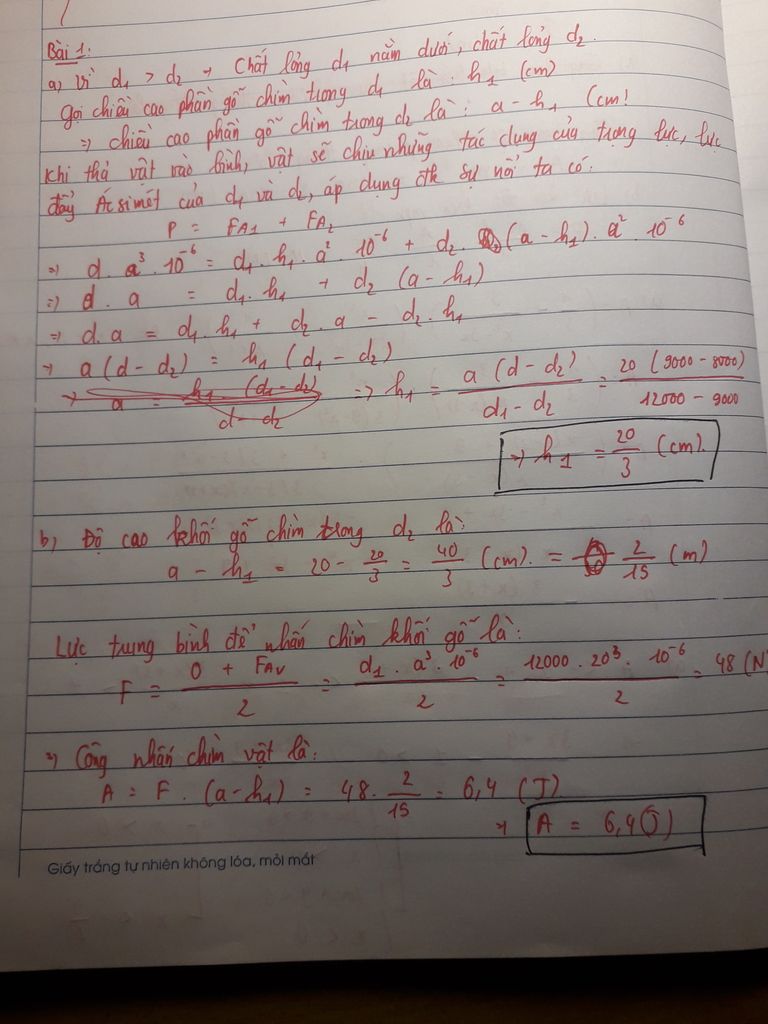 Bài 1:
a) Vì d₁ > d₂ → Chất lỏng d₁ nằm dưới, chất lỏng d₂.
Gọi chiều cao phần gỗ chìm trong d₁ là h₁ (cm)
⇒ chiều cao phần gỗ chìm trong d₂ là: a - h₁ (cm)
Khi thả vật vào bình, vật sẽ chịu những tác dụng của trọng lực, lực
đẩy Ácsimét của d₁ và d₂, áp dụng đk sự nổi ta có:
P = FA₁ + FA₂
⇒ d . a³ . 10⁻⁶ = d₁ . h₁ . a² . 10⁻⁶ + d₂ . (a - h₁) . a² . 10⁻⁶
⇒ d . a = d₁ . h₁ + d₂ (a - h₁)
⇒ d . a = d₁ . h₁ + d₂ . a - d₂ . h₁
→ a (d - d₂) = h₁ (d₁ - d₂)
→ a = h₁ (d₁ - d₂) / d - d₂ ⇒ h₁ = a (d - d₂) / d₁ - d₂ = 20 (9000 - 8000) / 12000 - 9000
→ h₁ = 20/3 (cm).
b) Độ cao khối gỗ chìm trong d₂ là:
a - h₁ = 20 - 20/3 = 40/3 (cm). = 2/15 (m)
Lực trung bình để nhấn chìm khối gỗ là:
F = 0 + FAV / 2 = d₁ . a³ . 10⁻⁶ / 2 = 12000 . 20³ . 10⁻⁶ / 2 = 48 (N)
⇒ Công nhấn chìm vật là:
A = F . (a - h₁) = 48 . 2/15 = 6,4 (J)
→ A = 6,4 (J)
Giấy trắng tự nhiên không lóa, mỏi mắt